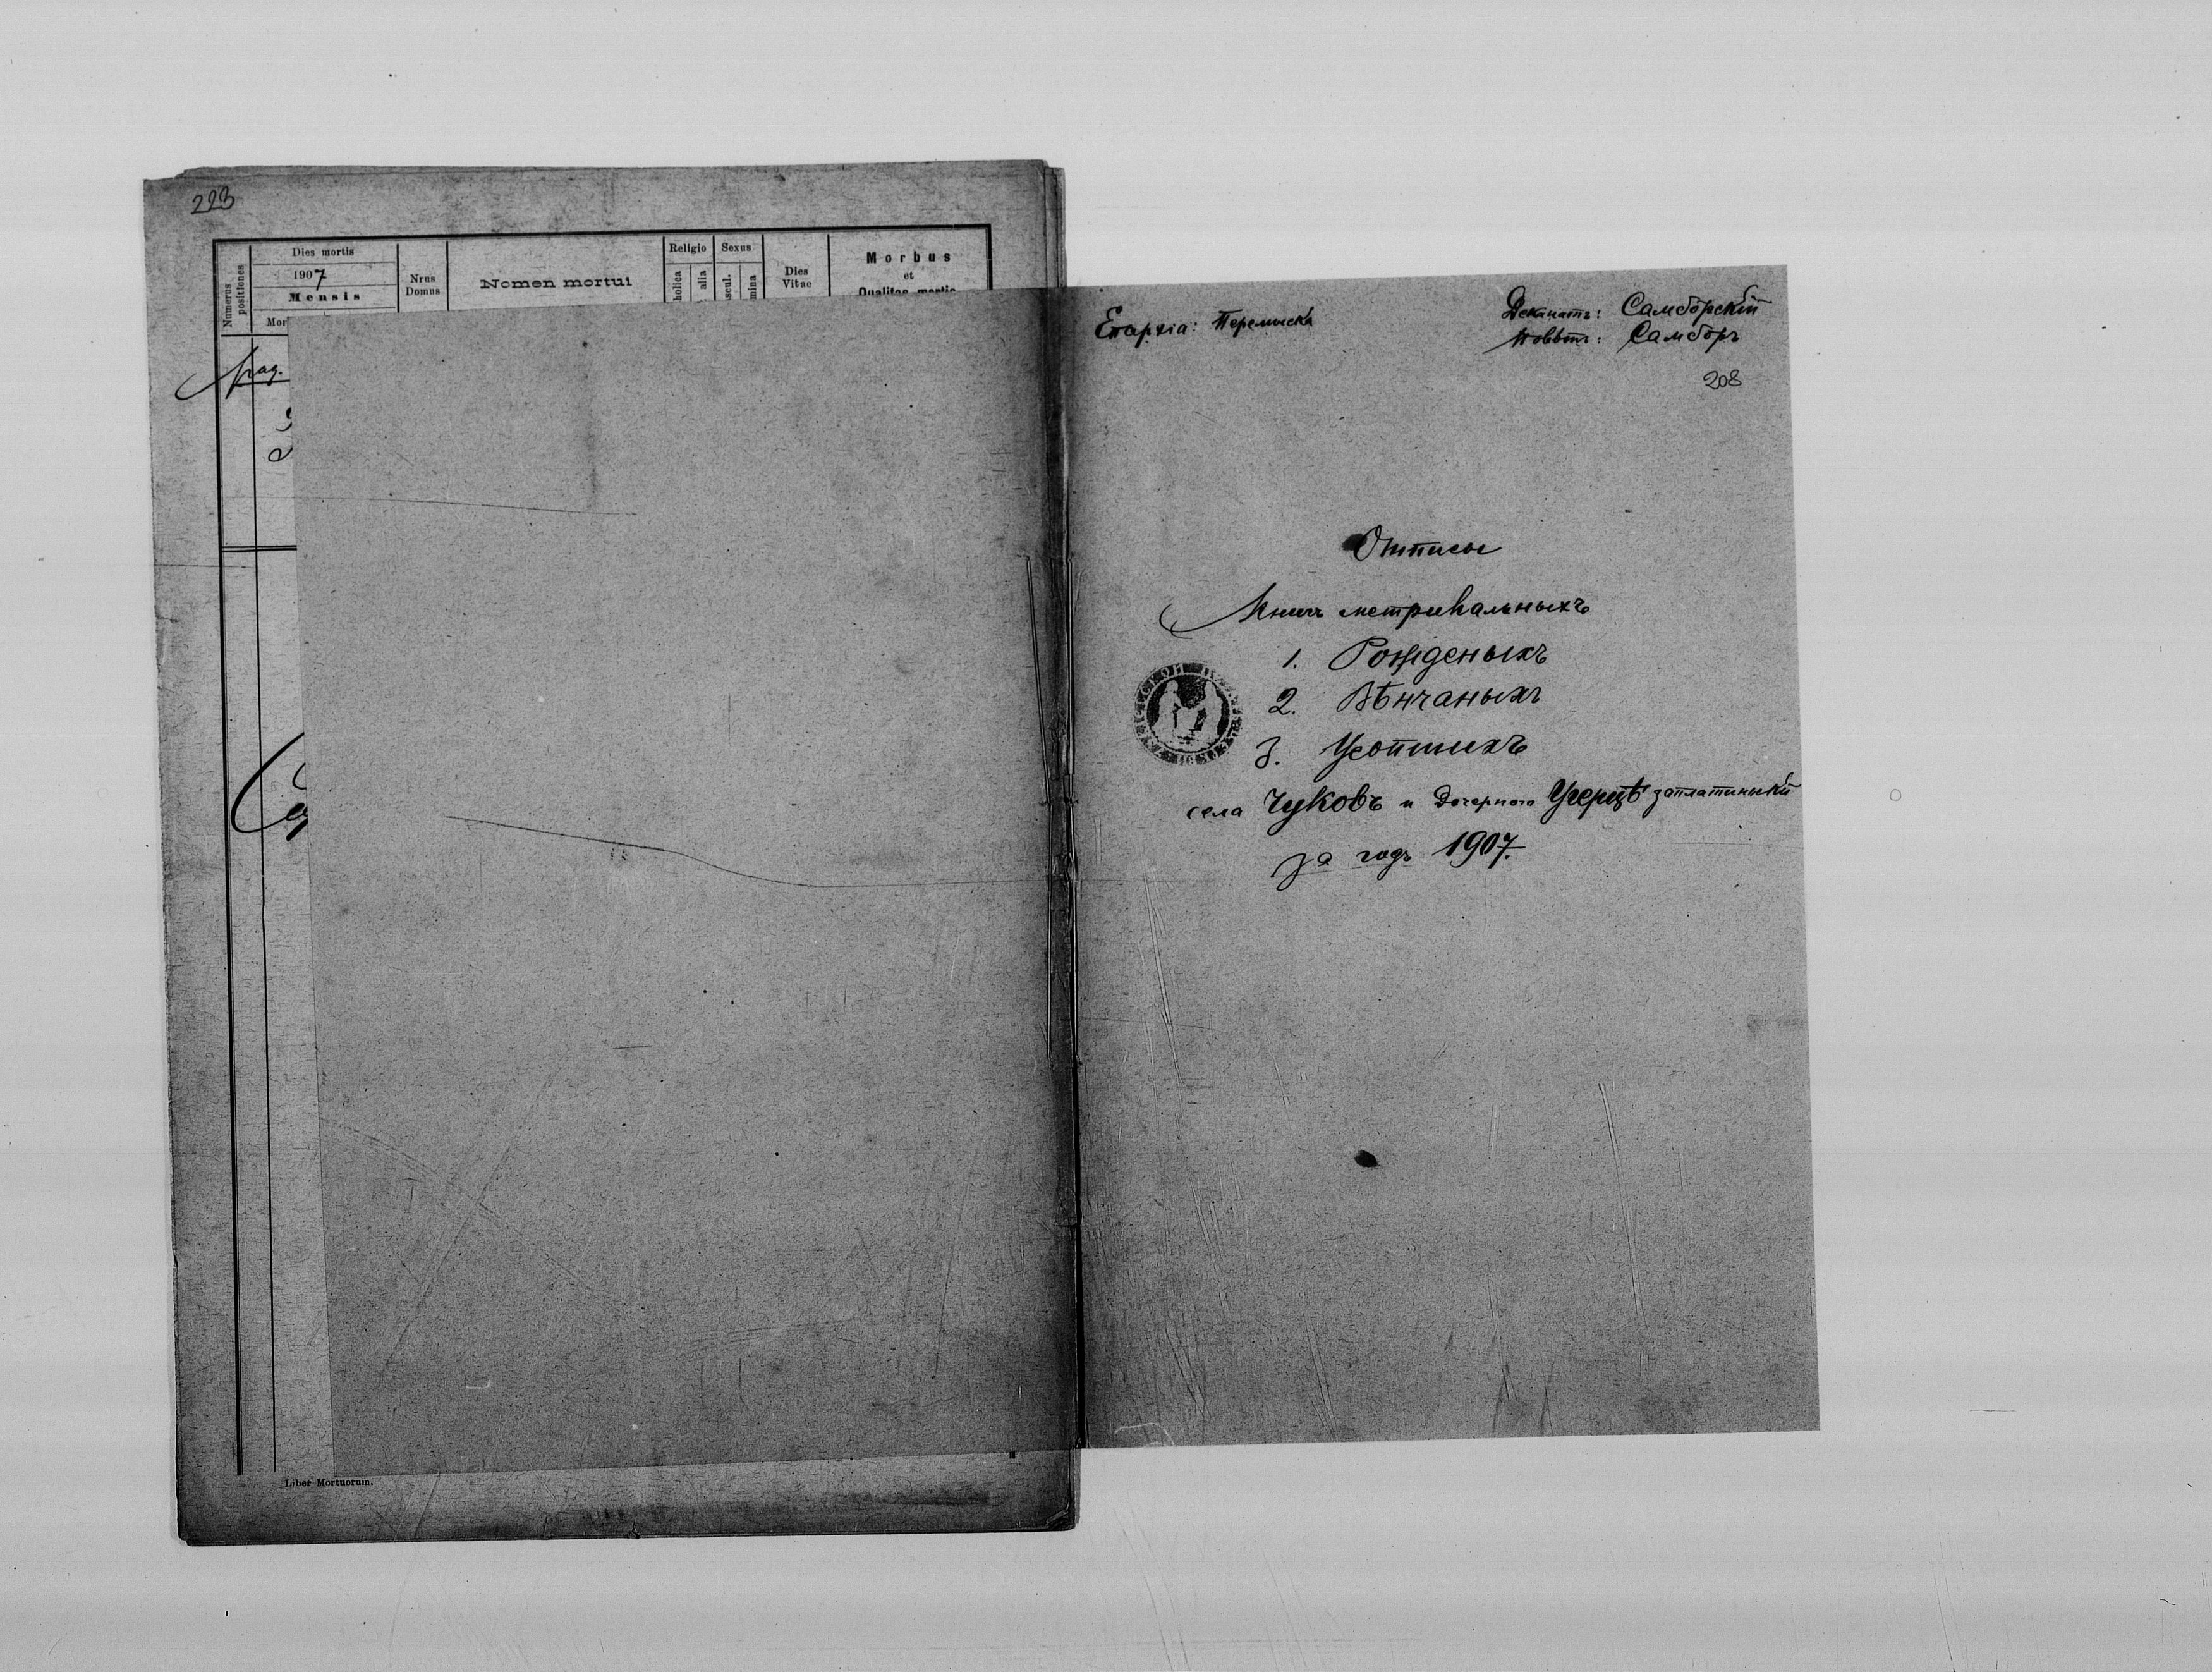 223
Dies mortis
1907
Mensis
Mor
Numerus
positiones
Nrus
Domus
Nomen mortui
Religio
holica
alia
Sexus
scul.
mina
Dies
Vitae
Morbus
et
Qualitas mortis
Liber Mortuorum.
Епархіа: Перемиска
Деканатъ: Самбôрскій
Повѣтъ: Самборъ
208
Отписы
Книгъ метрикальныхъ
1. Рожденыхъ
2. Вѣнчаныхъ
3. Усопшихъ
села Чуковъ и дочерного Угерцѣ заплатинскій
за годъ 1907.